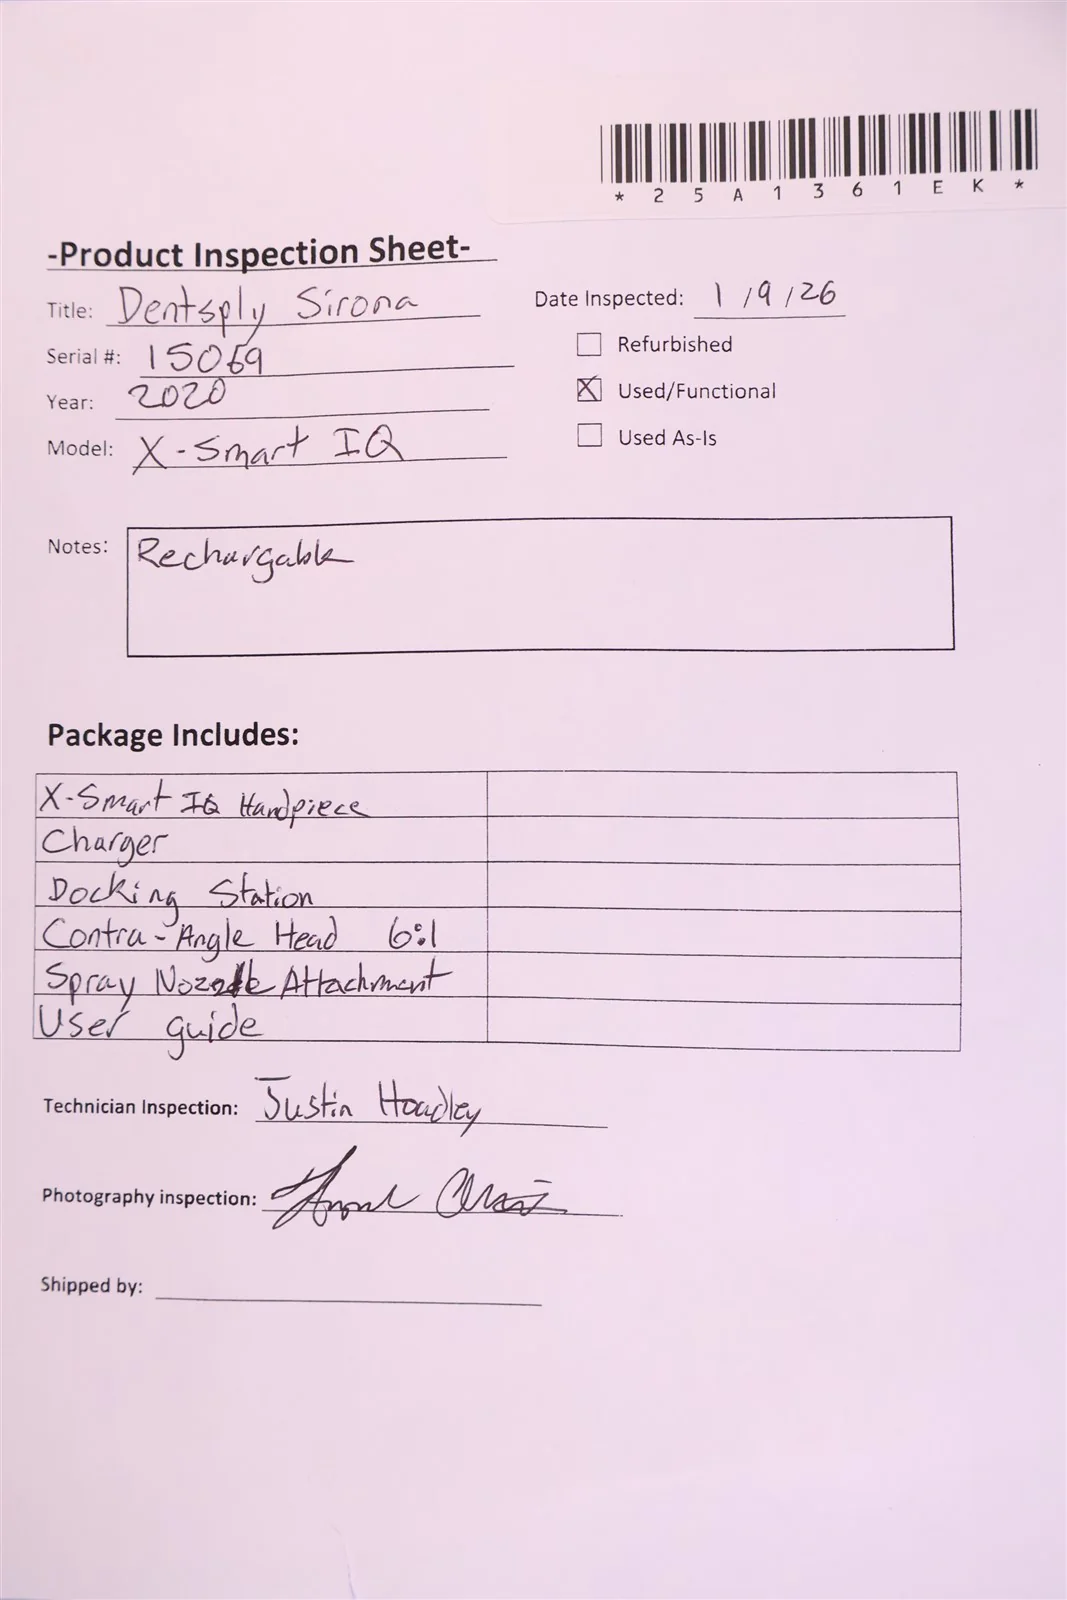 *25A1361EK*
-Product Inspection Sheet-
Title: Dentsply Sirona
Date Inspected: 1/9/26
Serial #: 15069
Refurbished
Year: 2020
Used/Functional
Model: X-Smart IQ
Used As-Is
Notes: Rechargable
Package Includes:
X-Smart IQ Handpiece
Charger
Docking Station
Contra-Angle Head 6:1
Spray Nozzle Attachment
User guide
Technician Inspection: Justin Hoadley
Photography inspection:
Shipped by: